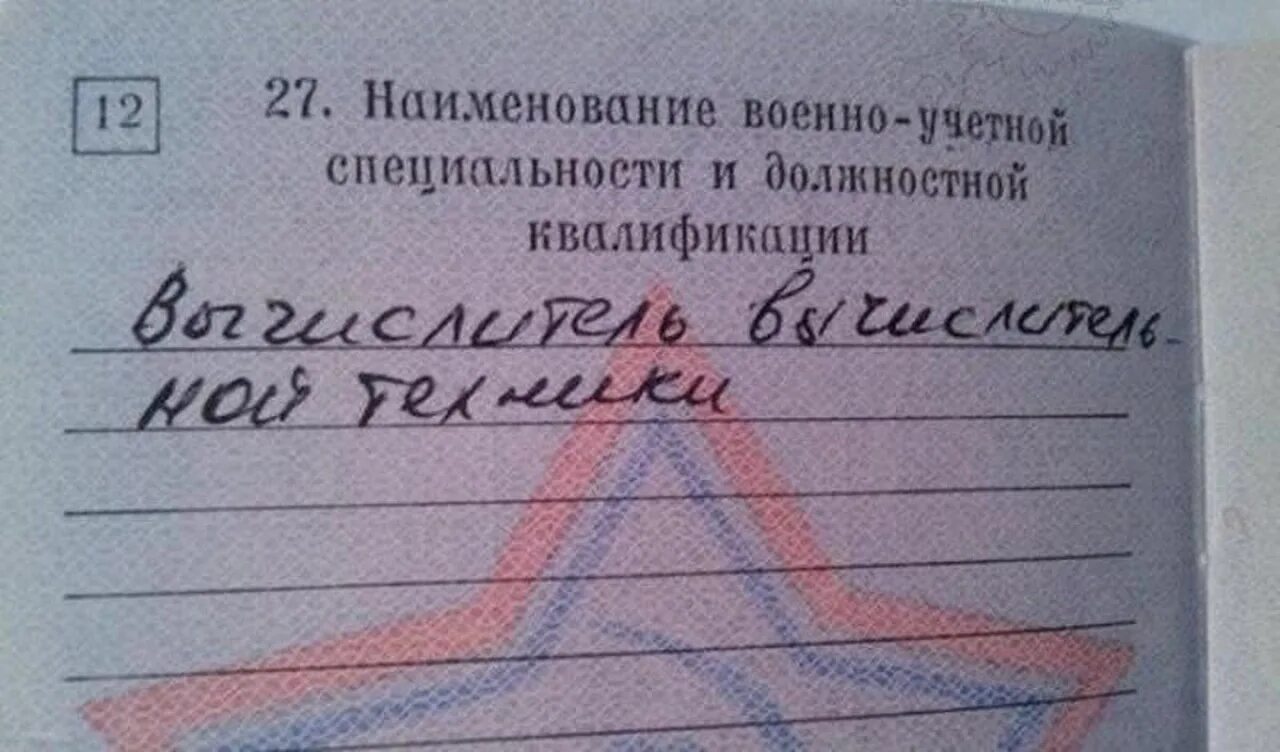 12
27. Наименование военно-учетной
специальности и должностной
квалификации
Вычислитель вычислитель-
ной техники